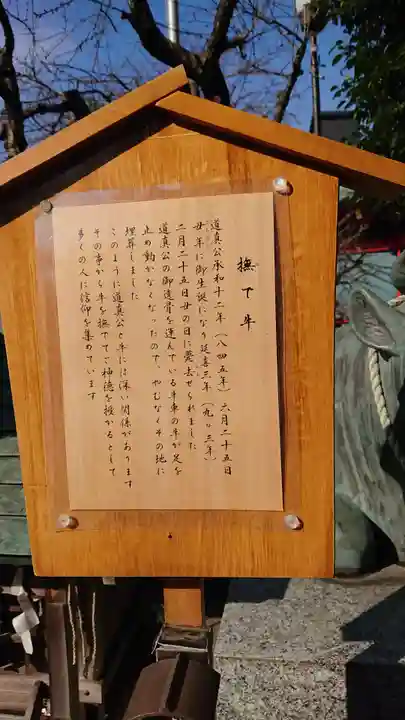 撫で牛
道真公承和十二年（八四五年）六月二十五日
丑年に御生誕になり延喜三年（九〇三年）
二月二十五日丑の日に薨去せられました
道真公の御遺骨を運んでいる牛車の牛が足を
止め動かなくなったので、やむなくその地に
埋葬しました
このように道真公と牛には深い関係があります
その事から牛を撫でてご神徳を授かるとして
多くの人に信仰を集めています